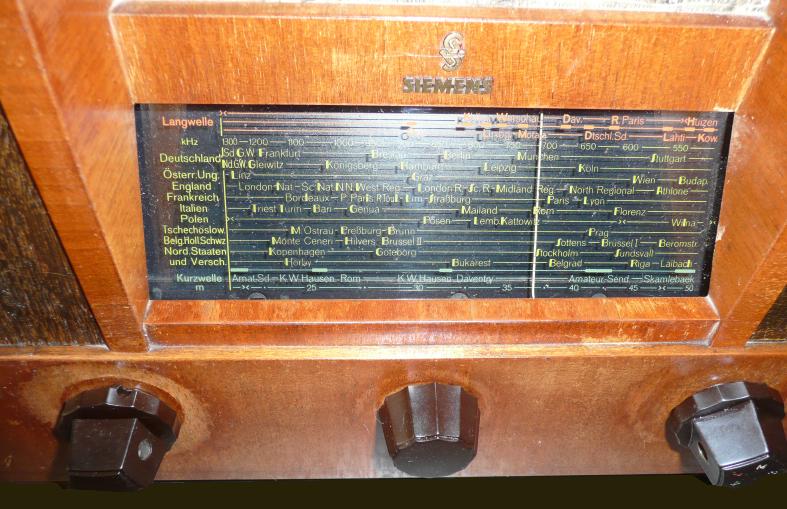 SIEMENS
Langwelle Warschau Dav. R.Paris Huizen
Motala Dtschl.Sd. Lahti Kow.
kHz 1300 1200 1100 1000 750 700 650 600 550
Deutschland Sd.G.W. Frankfurt Breslau Berlin München Stuttgart
Nd.G.W. Gleiwitz Königsberg Hamburg Leipzig Köln
Österr.Ung. Linz Graz Wien Budap.
England London Nat. Sc.Nat. N.N. West Reg. London R. Sc.R. Midland Reg. North Regional Athlone
Frankreich Bordeaux P.Paris R.Toul. Lim. Straßburg Paris Lyon
Italien Triest Turin Bari Genua Mailand Rom Florenz
Polen Posen Lemb. Kattowitz Wilna
Tschechoslow. M.Ostrau Preßburg Brunn Prag
Belg.Holl.Schwz Monte Ceneri Hilvers. Brüssel II Sottens Brüssel I Beromstr.
Nord.Staaten Kopenhagen Göteborg Stockholm Sundsvall
und Versch. Horby Bukarest Belgrad Riga Laibach
Kurzwelle Amat.Sd. K.W.Hausen Rom K.W.Hausen Daventry Amateur-Send. Skamlebaek
m 25 30 35 40 45 50